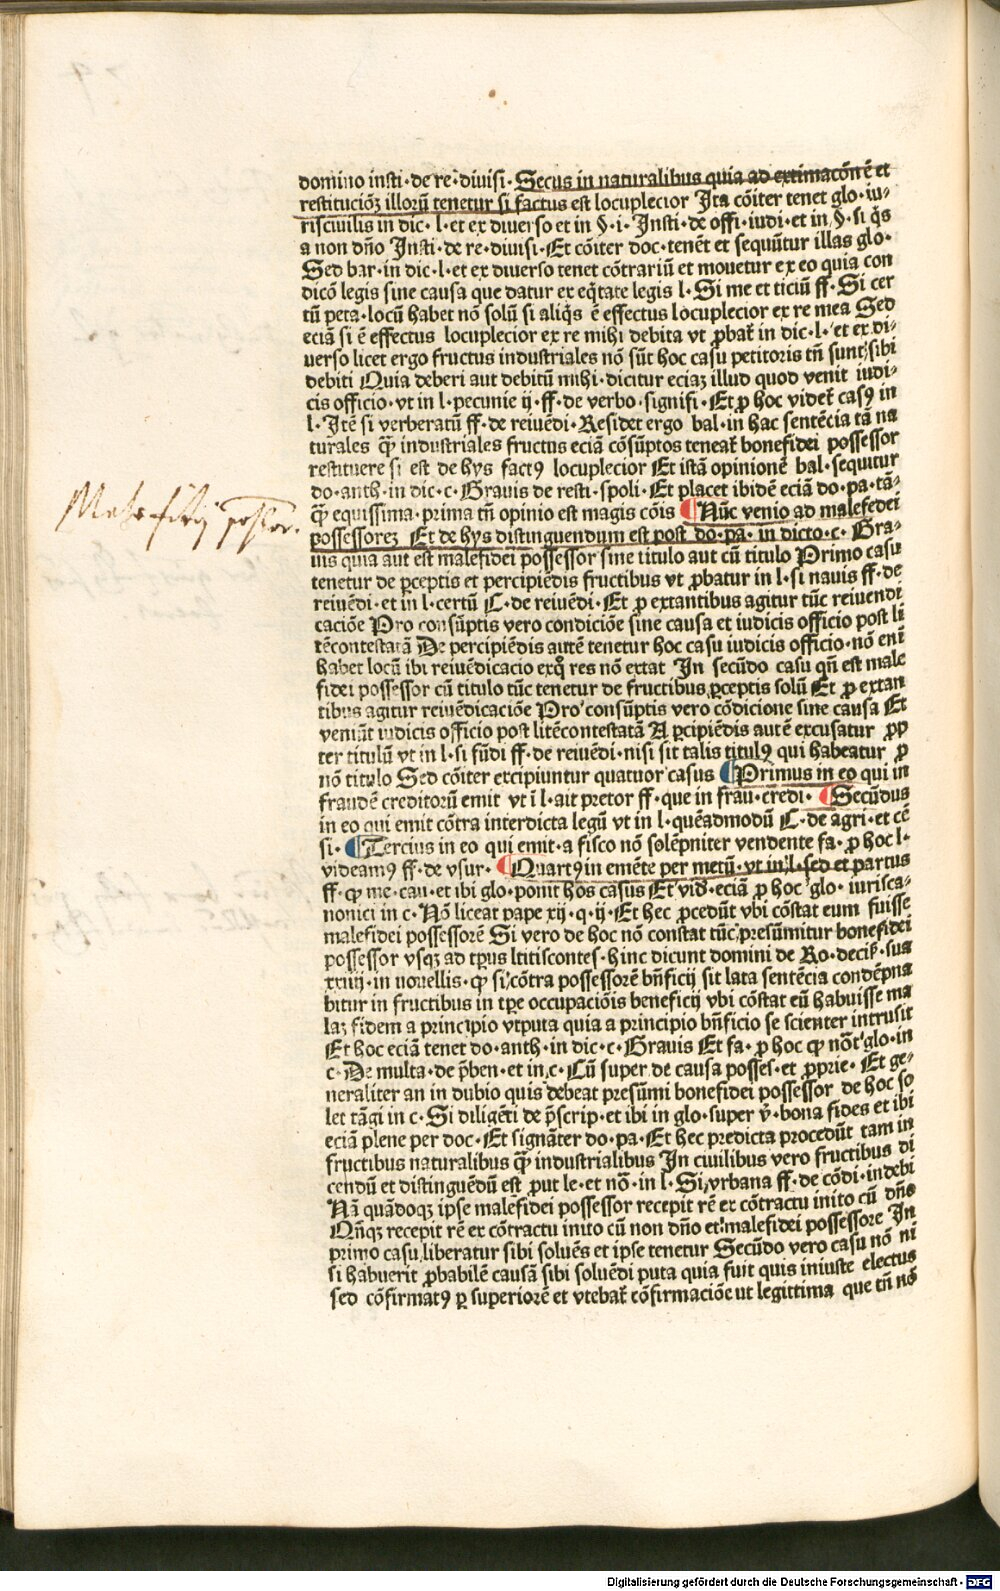 domino insti· de re· diuisi· Secus in naturalibus quia ad extimacōn̄ē et
restitucioꝫ illorū tenetur si factus est locuplecior Ita cōiter tenet glo· iu-
risciuilis in dic· l· et ex diuerso et in §· i· Insti· de offi· iudi· et in §· si qͥs
a non dn̄o Insti· de re· diuisi· Et cōiter doc· tenēt et sequūtur illas glo·
Sed bar· in dic· l· et ex diuerso tenet cōtrariū et mouetur ex eo quia con
dicō legis sine causa que datur ex eqͥtate legis l· Si me et ticiū ff· Si cer
tū peta· locū habet nō solū si aliqͥs ē effectus locuplecior ex re mea Sed
eciā si ē effectus locuplecior ex re mihi debita vt ꝓbat̄ in dic· l· et ex di-
uerso licet ergo fructus industriales nō sūt hoc casu petitoris tn̄ sunt sibi
debiti Quia deberi aut debitū mihi· dicitur eciaꝫ illud quod venit iudi-
cis officio· vt in l· pecunie ij· ff· de verbo· signifi· Et ꝓ hoc videt̄ casꝰ in
l· Itē si verberatū ff· de reiuēdi· Residet ergo bal· in hac sentēcia tā na
turales qͣꝫ industriales fructus eciā cōsūptos teneat̄ bonefidei possessor
restituere si est de hys factꝰ locuplecior Et istā opinionē bal· sequitur
do· anth· in dic· c· Grauis de resti· spoli· Et placet ibidē eciā do· pa· tā-
qͣꝫ equissima· prima tn̄ opinio est magis cōis ¶ Nūc venio ad malefedei
possessoreꝫ Et de hys distinguendum est post do· pa· in dicto· c· Gra-
uis quia aut est malefidei possessor sine titulo aut cū titulo Primo casu
tenetur de ꝑceptis et percipiēdis fructibus vt ꝓbatur in l· si nauis ff· de
reiuēdi· et in l· certū C· de reiuēdi· Et ꝓ extantibus agitur tūc reiuendi
caciōe Pro consūptis vero condiciōe sine causa et iudicis officio post li
tēcontestatā De percipiēdis autē tenetur hoc casu iudicis officio· nō eni
habet locū ibi reiuēdicacio exqͦ res nō extat In secūdo casu qn̄ est male
fidei possessor cū titulo tūc tenetur de fructibus ꝑceptis solū Et ꝓ extan
tibus agitur reiuēdicaciōe Pro consūptis vero cōdicione sine causa Et
veniūt iudicis officio post litēcontestatā A ꝑcipiēdis autē excusatur ꝓp
ter titulū vt in l· si fūdi ff· de reiuēdi· nisi sit talis titulꝰ qui habeatur ꝓ
nō titulo Sed cōiter excipiuntur quatuor casus ¶ Primus in eo qui in
fraudē creditorū emit vt ī l· ait pretor ff· que in frau· credi· ¶ Secūdus
in eo qui emit cōtra interdicta legū vt in l· quēadmodū C· de agri· et cē
si· ¶ Tercius in eo qui emit· a fisco nō solēpniter vendente fa· ꝓ hoc l·
videamꝰ ff· de vsur· ¶ Quartꝰ in emēte per metū· vt in l· sed et partus
ff· qꝫ me· cau· et ibi glo· ponit hos casus Et vid· eciā ꝓ hoc glo· iurisca-
nonici in c· Nō liceat pape xij· q· ij· Et hec ꝓcedūt vbi cōstat eum fuisse
malefidei possessorē Si vero de hoc nō constat tūc presūmitur bonefidei
possessor vsqꝫ ad tp̄us ltitiscontes· hinc dicunt domini de Ro· decis̄· sua
xxiiij· in nouellis· qꝫ si cōtra possessorē bn̄ficij sit lata sentēcia condēpna
bitur in fructibus in tp̄e occupaciōis beneficij vbi cōstat eū habuisse ma
laꝫ fidem a principio vtputa quia a principio bn̄ficio se scienter intrusit
Et hoc eciā tenet do· anth· in dic· c· Grauis Et fa· ꝓ hoc qꝫ nōt̄ glo· in
c· De multa· de p̄ben· et in c· Cū super de causa posses· et ꝓprie· Et ge-
neraliter an in dubio quis debeat presūmi bonefidei possessor de hoc so
let tāgi in c· Si diligēti de p̄scrip· et ibi in glo· super v̄· bona fides et ibi
eciā plene per doc· Et signāter do· pa· Et hec predicta procedūt tam in
fructibus naturalibus qͣꝫ industrialibus In ciuilibus vero fructibus di
cendū et distinguēdū est ꝓut le· et nō· in l· Si vrbana ff· de cōdi· indebi
Nā quādoqꝫ ipse malefidei possessor recepit rē ex cōtractu inito cū dn̄o
Qn̄qꝫ recepit rē ex cōtractu inito cū non dn̄o et malefidei possessore In
primo casu liberatur sibi soluēs et ipse tenetur Secūdo vero casu nō ni
si habuerit ꝓbabilē causā sibi soluēdi puta quia fuit quis iniuste electus
sed cōfirmatꝰ ꝑ superiorē et vtebat̄ cōfirmaciōe ut legittima que tn̄ nō